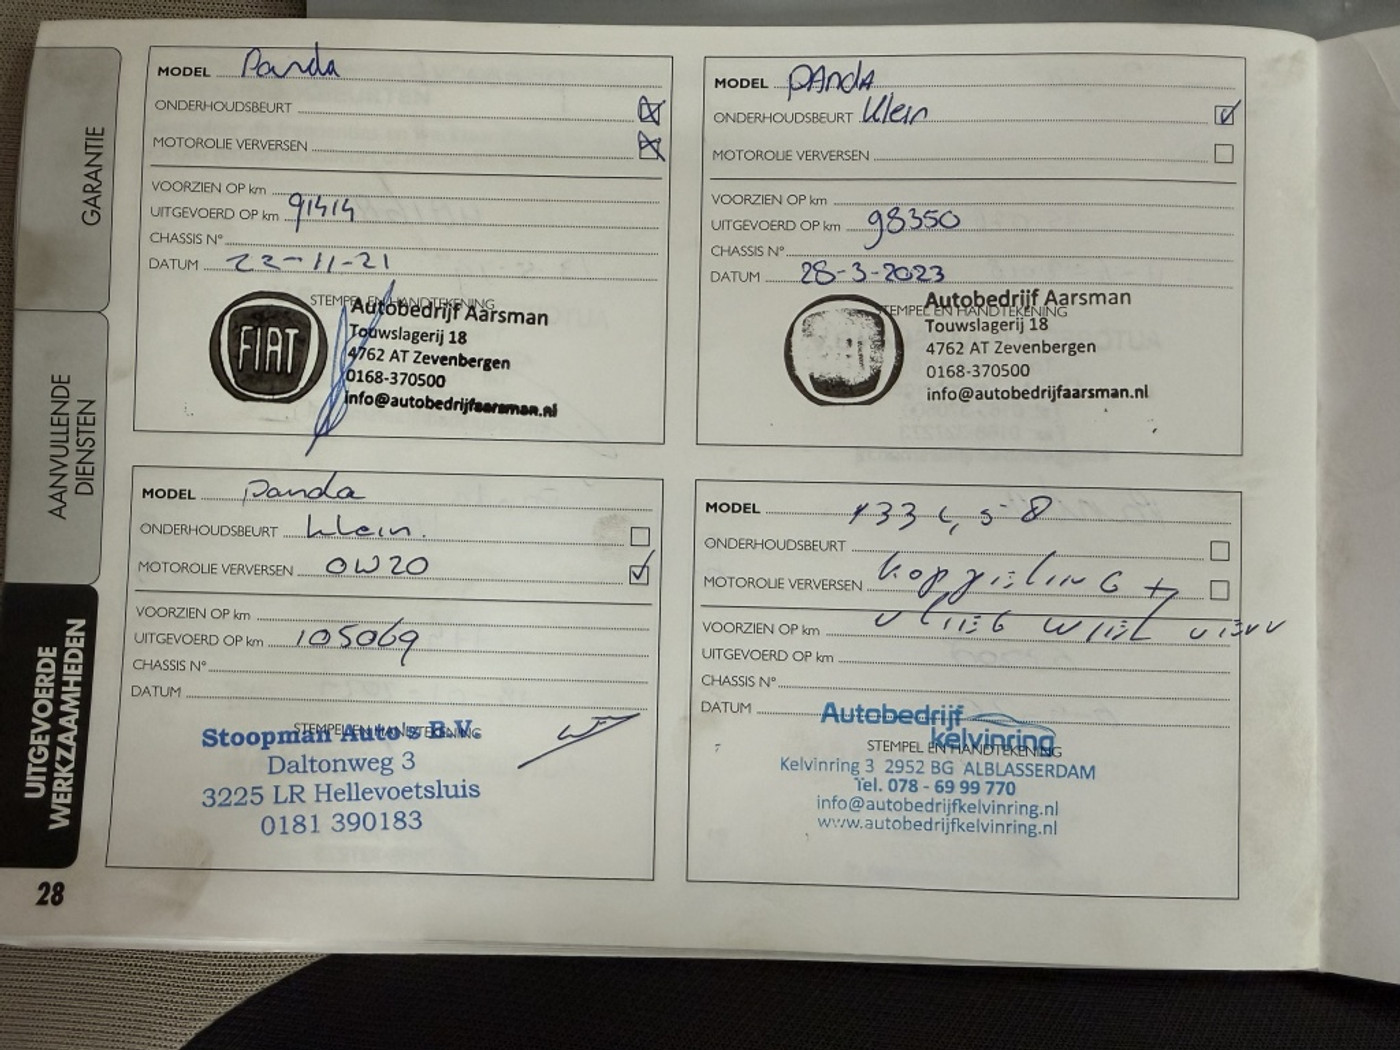 GARANTIE
AANVULLENDE
DIENSTEN
UITGEVOERDE
WERKZAAMHEDEN
28
MODEL Panda
ONDERHOUDSBEURT
MOTOROLIE VERVERSEN
VOORZIEN OP km
UITGEVOERD OP km 91414
CHASSIS N°
DATUM 22-11-21
STEMPEL EN HANDTEKENING
FIAT
Autobedrijf Aarsman
Touwslagerij 18
4762 AT Zevenbergen
0168-370500
info@autobedrijfaarsman.nl
MODEL PANdA
ONDERHOUDSBEURT Klein
MOTOROLIE VERVERSEN
VOORZIEN OP km
UITGEVOERD OP km 98350
CHASSIS N°
DATUM 28-3-2023
STEMPEL EN HANDTEKENING
Autobedrijf Aarsman
Touwslagerij 18
4762 AT Zevenbergen
0168-370500
info@autobedrijfaarsman.nl
MODEL Panda
ONDERHOUDSBEURT klein.
MOTOROLIE VERVERSEN OW20
VOORZIEN OP km
UITGEVOERD OP km 105069
CHASSIS N°
DATUM
STEMPEL EN HANDTEKENING
Stoopman Auto's B.V.
Daltonweg 3
3225 LR Hellevoetsluis
0181 390183
MODEL
ONDERHOUDSBEURT
MOTOROLIE VERVERSEN koppeling +
VOORZIEN OP km vliegwiel
UITGEVOERD OP km
CHASSIS N°
DATUM
STEMPEL EN HANDTEKENING
Autobedrijf
kelvinring
Kelvinring 3 2952 BG ALBLASSERDAM
Tel. 078 - 69 99 770
info@autobedrijfkelvinring.nl
www.autobedrijfkelvinring.nl